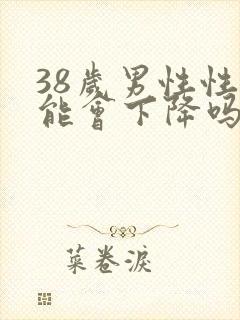 38歲男性性
能會下降吗
菜卷淚